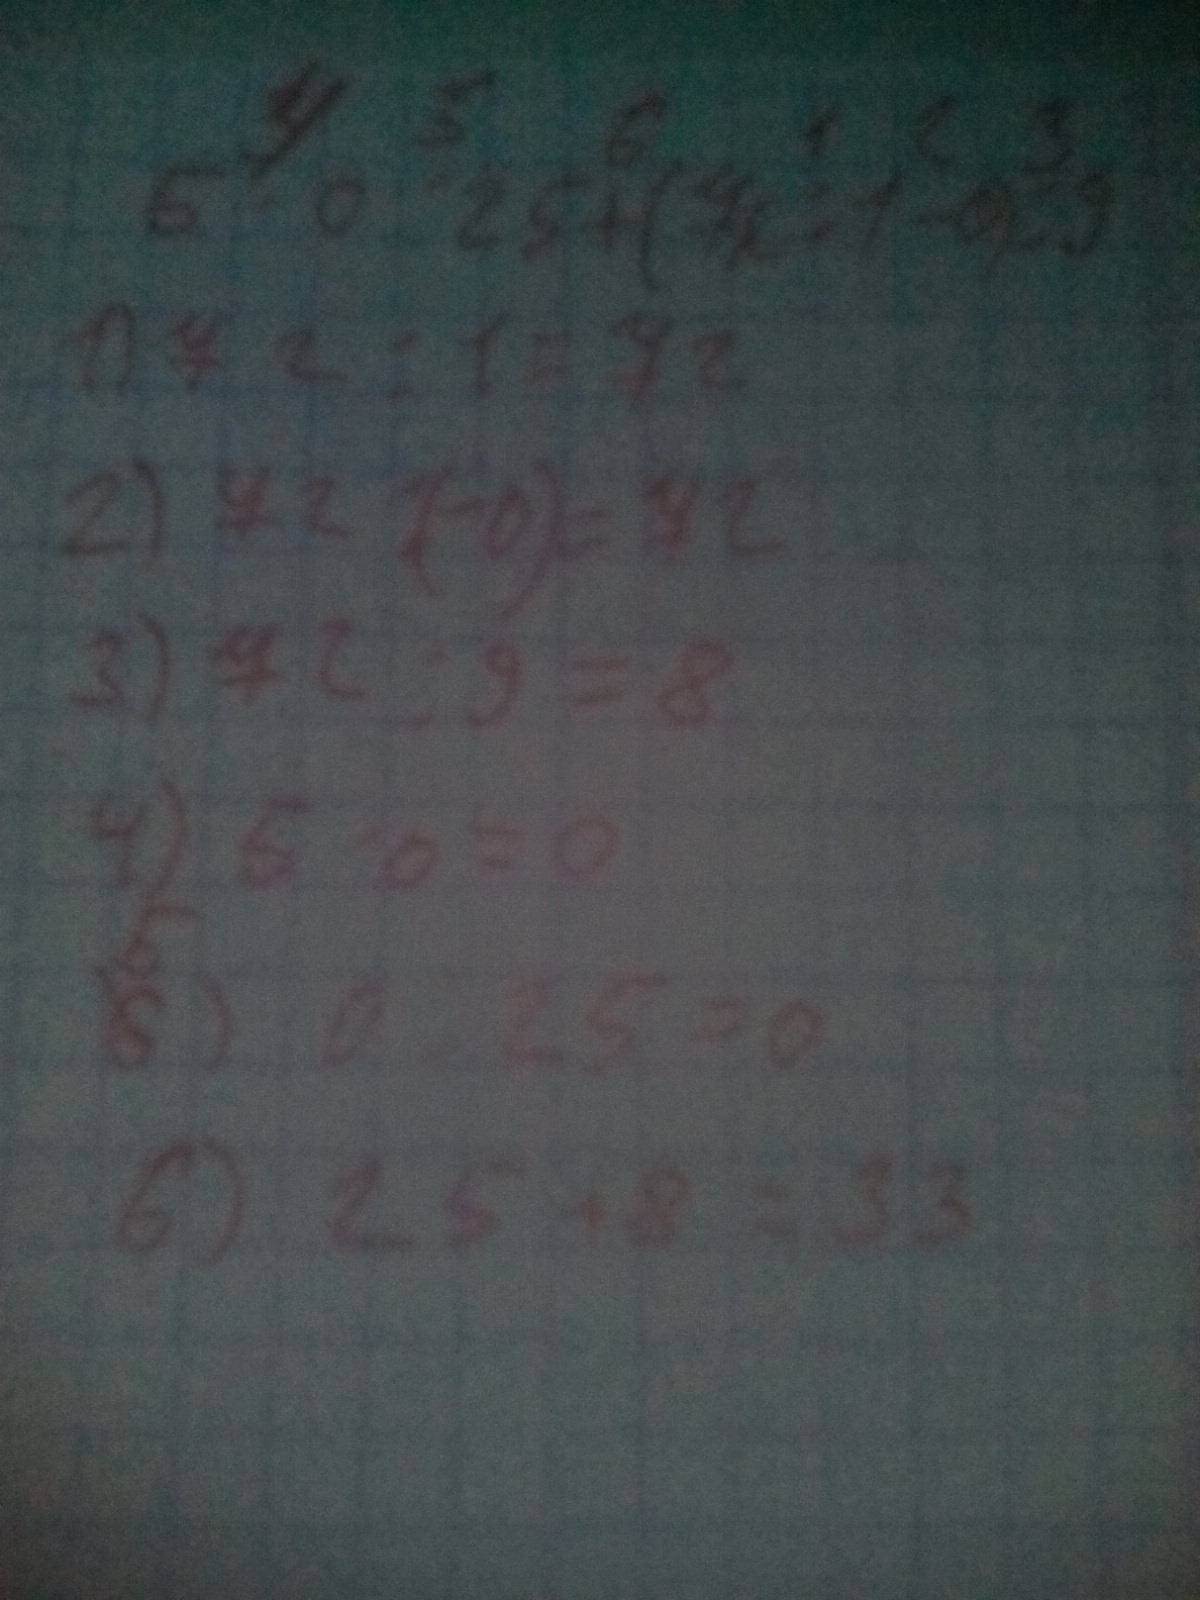 4 5 6 1 2 3
5 · 0 : 25 + (72 : 1 - 0) : 9
1) 72 : 1 = 72
2) 72 (-0) = 72
3) 72 : 9 = 8
4) 5 · 0 = 0
5
5) 0 : 25 = 0
6) 25 + 8 = 33